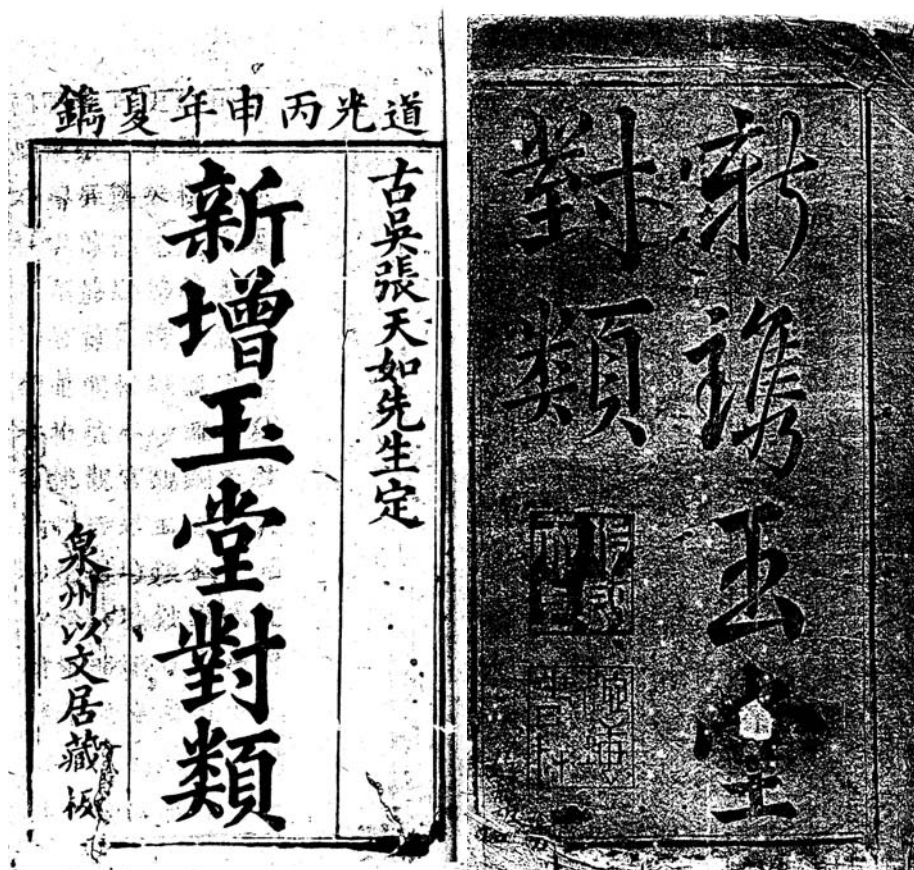 道光丙申年夏鐫
古吳張天如先生定
新增玉堂對類
泉州以文居藏板
新鐫玉堂
對類